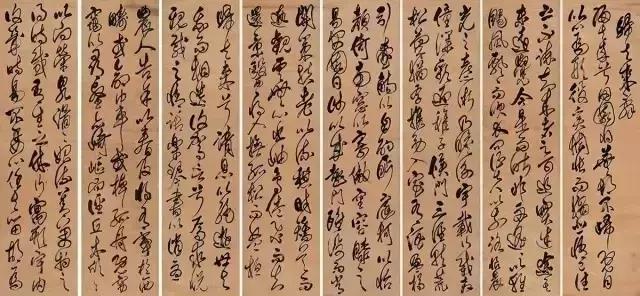 歸去來辭
歸去來兮田園將蕪胡不歸既自
以心為形役奚惆悵而獨悲悟往
之不諫知來者之可追實迷途其
未遠覺今是而昨非舟遙遙以輕
颺風飄飄而吹衣問征夫以前路恨晨
光之熹微乃瞻衡宇載欣載奔
僮僕歡迎稚子候門三徑就荒
松菊猶存攜幼入室有酒盈樽
引壺觴以自酌眄庭柯以怡
顏倚南窗以寄傲審容膝之
易安園日涉以成趣門雖設而常
關策扶老以流憩時矯首而
遐觀雲無心以出岫鳥倦飛而知
還景翳翳以將入撫孤松而盤桓
歸去來兮請息交以絕遊世與
我而相遺復駕言兮焉求悅親
戚之情話樂琴書以消憂
農人告余以春及將有事於西
疇或命巾車或棹孤舟既窈
窕以尋壑亦崎嶇而經丘木欣欣
以向榮泉涓涓而始流羨萬物之
得時感吾生之行休寓形宇內
復幾時曷不委心任去留胡為